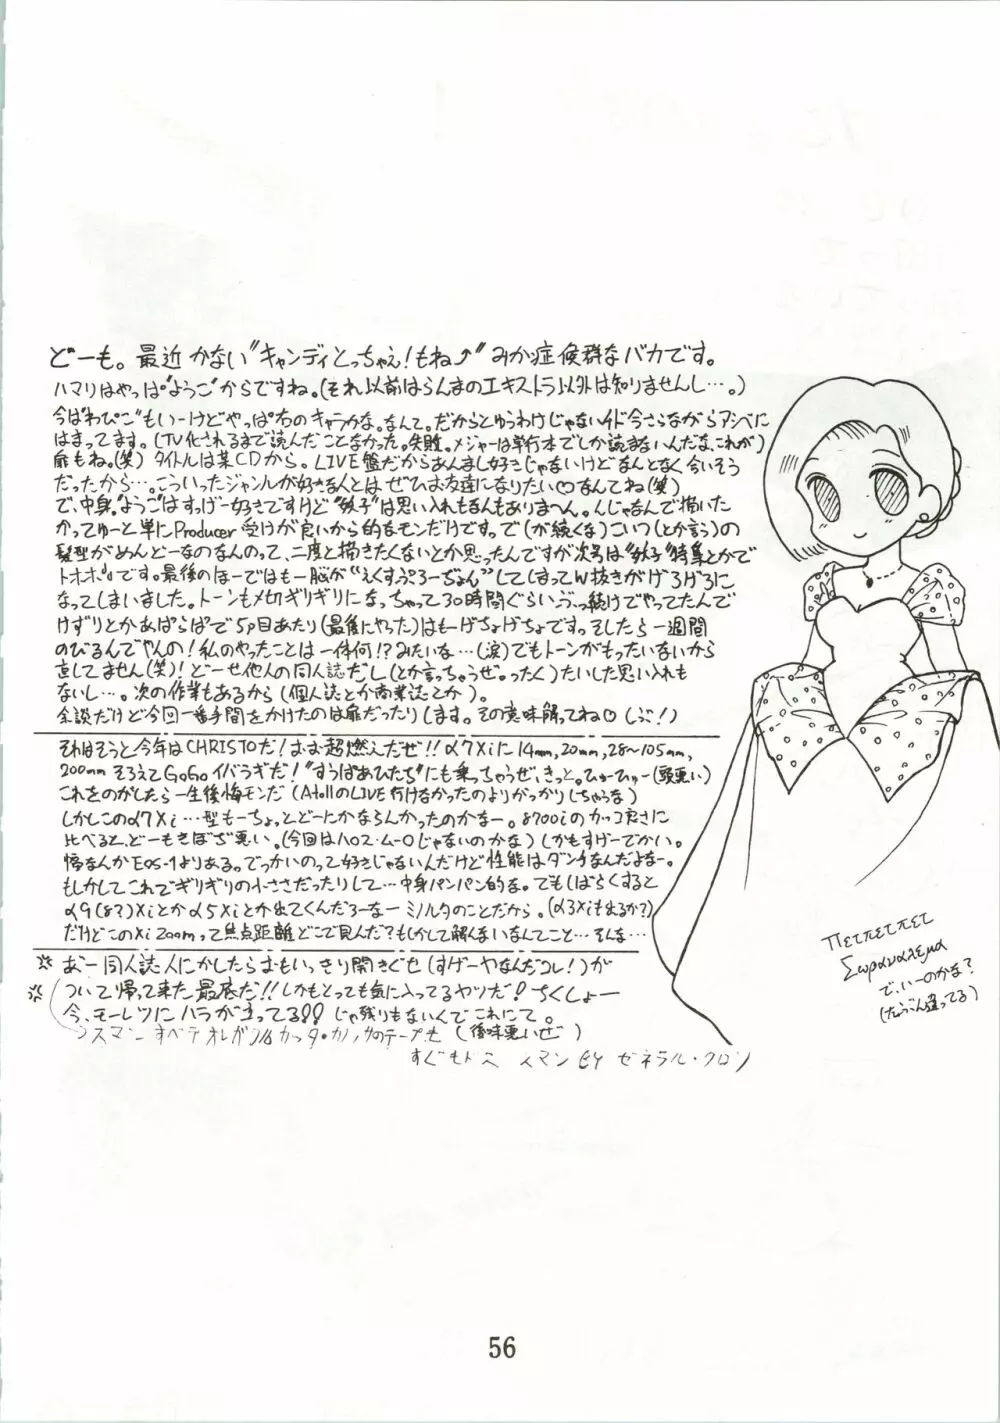 どーも。最近かない"キャンディとっちゃえ!もね⤴"みか症候群なバカです。
ハマリはやっぱ"ようこ"からですね。(それ以前はらんまのエキストラ以外は知りませんし…。)
今は"わぴこ"もいーけどやっぱ右のキャラかな。なんて。だからとゆうわけじゃないけど今さらながらアシベに
はまってます。(TV化されるまで読んだことなかった。失敗。メジャーは単行本でしか読まないんだな、これが)
扉もね。(笑) タイトルは某CDから。LIVE盤だからあんまし好きじゃないけどなんとなく合いそう
だったから…。こういったジャンルが好きな人とは、ぜひお友達になりたい♡なんてね(笑)
で、中身。"ようこ"はすっげー好きですけど"妖子"は思い入れもなんもありまへん。んじゃなんで描いた
かってゆーと単にProducer受けが良いから的なモンだけですっ。で(が続くな)こいつ(とか言う)の
髪型がめんどーなのなんのって、二度と描きたくないとか思ったんですが次号は"妖子"特集とかで
トオホホです。最後のほーではもー脳が"えくすぷろーぢょん"してしまってW抜きがげろげろに
なってしまいました。トーンも〆切ギリギリになっちゃって30時間ぐらいぶっ続けでやってたんで
けずりとかあぱらぱで5p目あたり(最後にやった)はもーげちょげちょですっ。そしたら一週間
のびるんでやんの!私のやったことは一体何!?みたいな…(涙)でもトーンがもったいないから
直してません(笑)!どーせ他人の同人誌だし(とか言っちゃうぜ。ったく)たいした思い入れも
ないし…。次の作業もあるから(個人誌とか商業誌とか)。
余談だけど今回一番手間をかけたのは扉だったりします。その意味解ってね♡(ぶ!)
それはそうと今年はCHRISTOだ!おお超燃えだぜ!!α7Xiに14mm,20mm,28~105mm,
200mmそろえてGoGoイバラギだ!"すうぱあひたち"にも乗っちゃうぜ、きっと。ひゅーひゅー(頭悪い)
これをのがしたら一生後悔モンだ(AtollのLIVE行けなかったのよりがっかり(ちゃうな)
しかしこのα7Xi…型もーちょっとどーにかならんかったのかなー。8700iのカッコ良さに
比べると、どーもきぼぢ悪い。(今回はハロス・ムーロじゃないのかな)しかもすげーでかい。
幅なんかEOS-1よりある。でっかいのって好きじゃないんだけど性能はダンチなんだよなー。
もしかしてこれでギリギリの小ささだったりして…中身パンパン的な。でもしばらくすると
α9(8?)Xiとかα5Xiとか出てくんだろーなーミノルタのことだから。(α3Xiも出るか?)
だけどこのXi Zoomって焦点距離どこで見んだ?もしかして解んないなんてこと…そんな…
あー同人誌人にかしたらおもいっきり開きぐせ(すげーやなんだコレ!)が
ついて帰って来た最低だ!!しかもとっても気に入ってるヤツだ!ちくしょー
今、モーレツにハラが立ってる!!じゃ残りもないくでこれにて。
スマン すべてオレが
カッタ・カノッサのテープも(後味悪いぜ)
すぐもどス スマン BY ゼネラル・クロン
Πετπετπετ
Σωραναλεμα
で、いーのかな?
(たぶん違ってる)
56